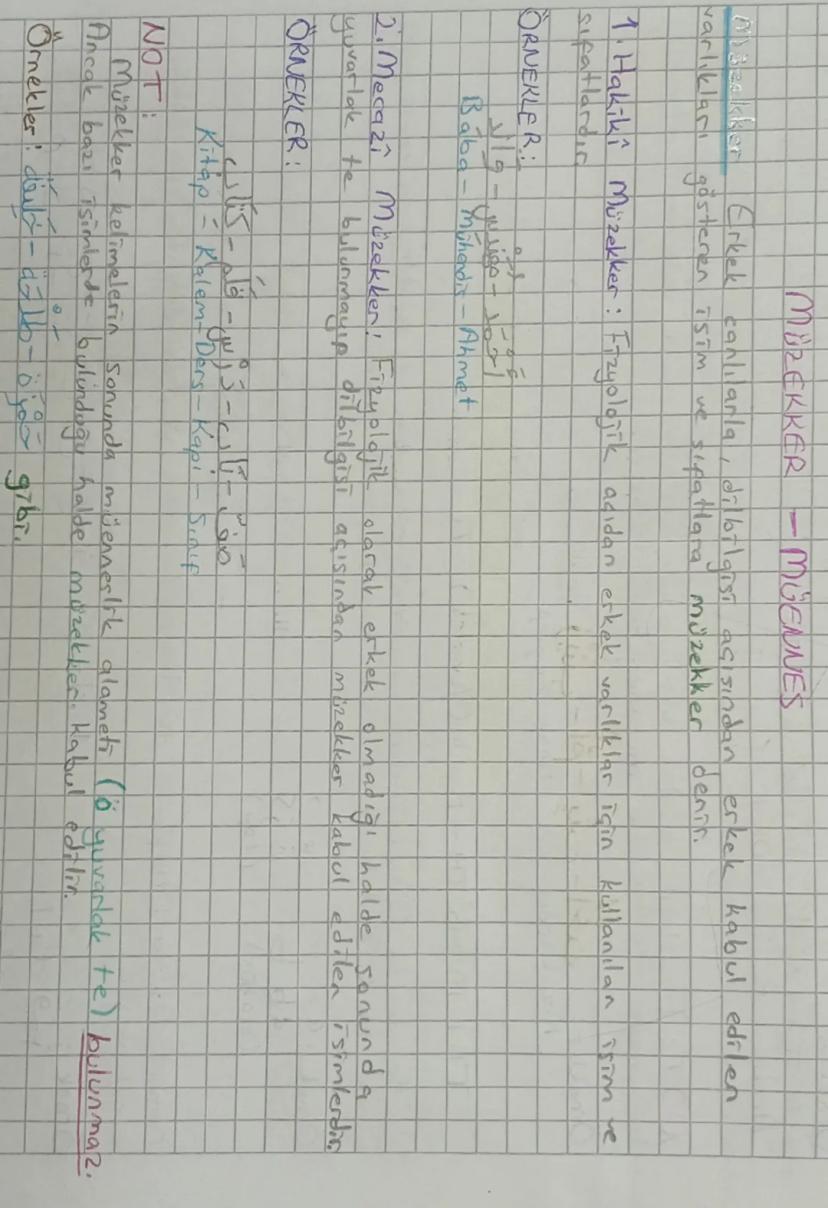 MÜZEKKER - MÜENNES
Müzekker Erkek canlılarla, dilbilgisi açısından erkek kabul edilen
varlıkları gösteren isim ve sıfatlara müzekker denir.
1. Hakikî Müzekker: Fizyolojik açıdan erkek varlıklar için kullanılan isim ve
sıfatlardır
ÖRNEKLER:
Baba - Mühendis - Ahmet
2. Mecazî Müzekker: Fizyolojik olarak erkek olmadığı halde sonunda
yuvarlak te bulunmayıp dilbilgisi açısından müzekker kabul edilen isimlerdir
ÖRNEKLER:
Kitap - Kalem - Ders - Kapı - Sınıf
NOT:
Müzekker kelimelerin sonunda müenneslik alameti (ة yuvarlak te) bulunmaz.
Ancak bazı isimlerde bulunduğu halde müzekker kabul edilir.
Örnekler: حمزة gibi.